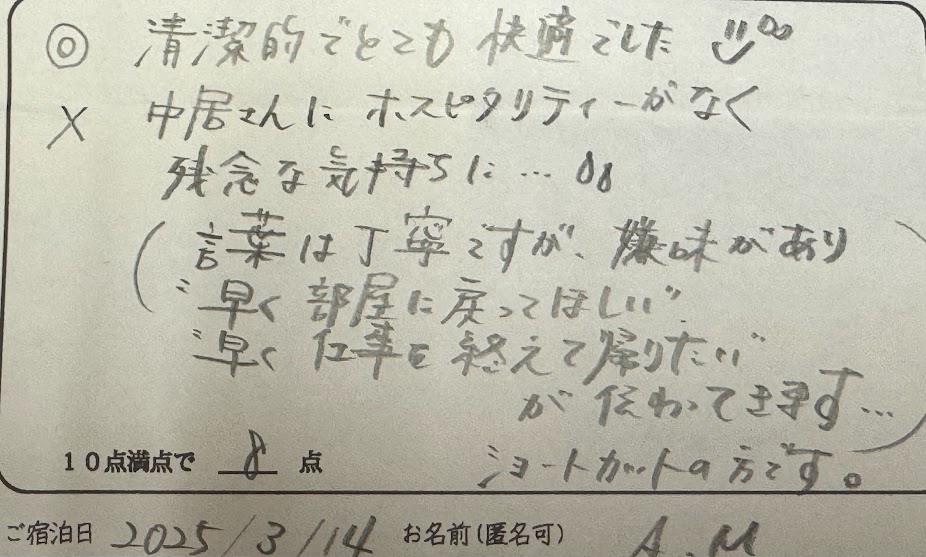 ◎ 清潔的でとても快適でした
× 中居さんにホスピタリティーがなく
残念な気持ちに…
(言葉は丁寧ですが、嫌味があり
"早く部屋に戻ってほしい"
"早く仕事を終えて帰りたい"
が伝わってきます…)
10点満点で 8 点
ショートカットの方です。
ご宿泊日 2025/3/14 お名前(匿名可) A.M